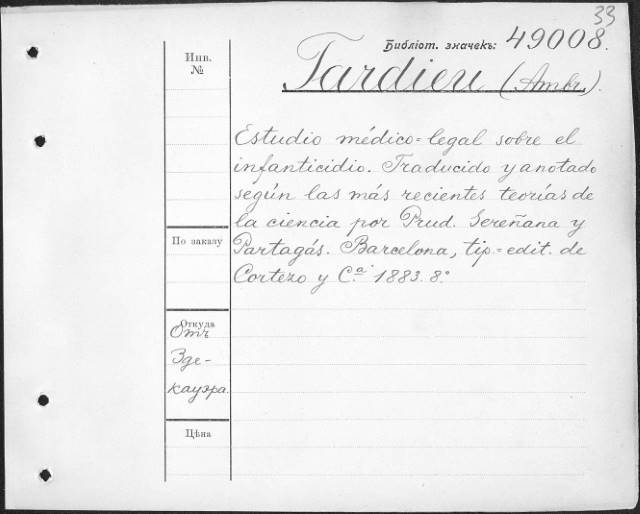 33
Библіот. значекъ: 49008.
Инв.
№
Tardieu (Ambr.).
Estudio médico=legal sobre el
infanticidio. Traducido y anotado
según las más recientes teorías de
la ciencia por Prud. Sereñana y
По заказу
Partagás. Barcelona, tip.=edit. de
Cortezo y C.ª 1883. 8.º
Откуда
Отъ
Зде-
кауэра.
Цѣна